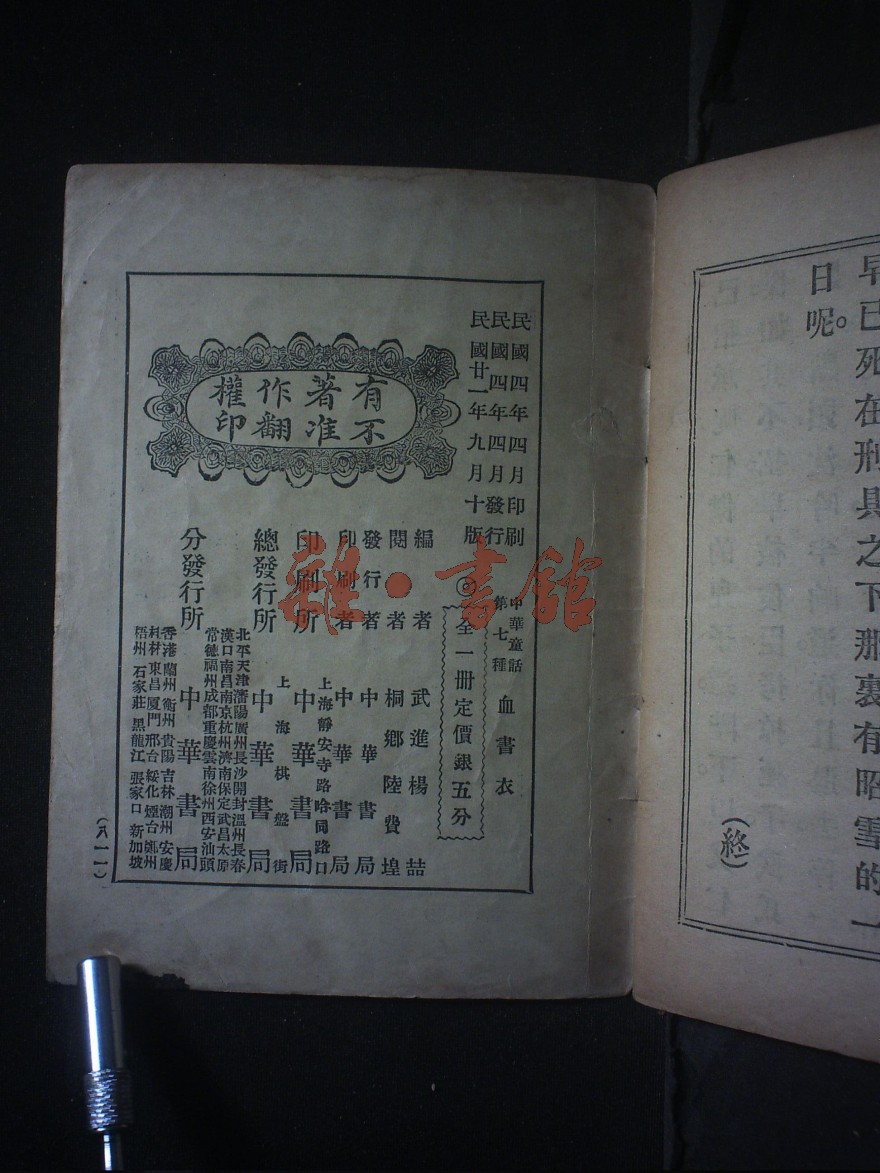 早已死在刑具之下那裏有昭雪的一
日呢。
(終)
民國四年四月印刷
民國四年四月發行
民國廿一年九月十版
有著作權
不准翻印
中華童話
第七種
血書衣
全一冊定價銀五分
編者 武進楊喆
閱者 桐鄉陸費堭
發行者 中華書局
印刷者 中華書局
印刷所 上海靜安寺路哈同路口 中華書局
總發行所 上海棋盤街 中華書局
分發行所 中華書局
北平天津瀋陽廣州長沙開封溫州長春
漢口南昌南京杭州濟南保定武昌太原
常德福州成都重慶雲南徐州西安汕頭
香港蘭州衢州貴陽吉林潮州安慶
東昌厦門邢台綏化煙台鄭州
梧州 石家莊 黑龍江 張家口 新加坡
(八一一)
雜·書館